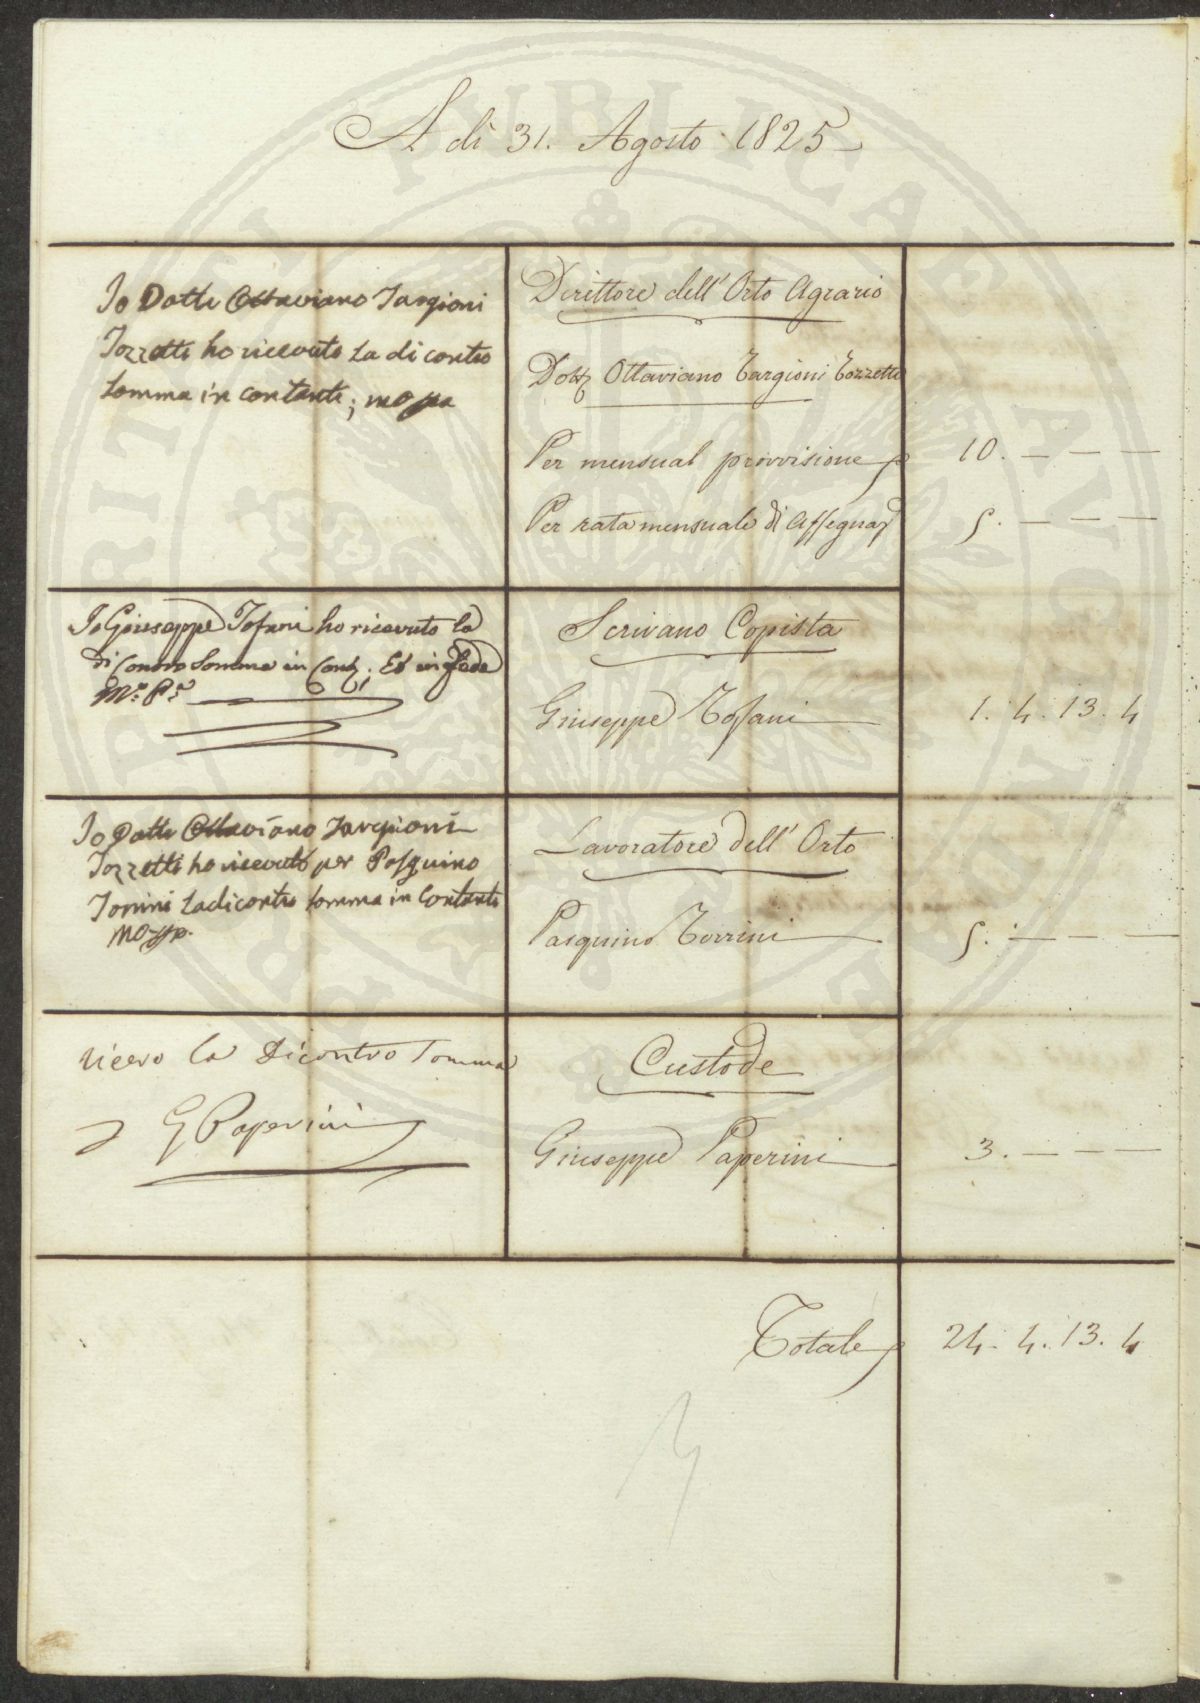 A dì 31. Agosto 1825
Io Dotte Ottaviano Targioni
Tozzetti ho ricevuto La di contro
Somma in contanti; mo ppa
Direttore dell' Orto Agrario
Dott Ottaviano Targioni Tozzetti
Per mensual provvisione 10. — — —
Per rata mensuale di Assegnaz 5. — — —
Io Giuseppe Tofani ho ricevuto la
di Contro Somma in Cont; Ed in Fede
Mo Pa
Scrivano Copista
Giuseppe Tofani 1. 4. 13. 4
Io Dotte Ottaviano Targioni
Tozzetti ho ricevuto per Pasquino
Torrini La di contro Somma in Contanti
mo pp.
Lavoratore dell' Orto
Pasquino Torrini 5. — — —
ricevo la Dicontro Somma
G Paperini
Custode
Giuseppe Paperini 3. — — —
Totale 24. 4. 13. 4